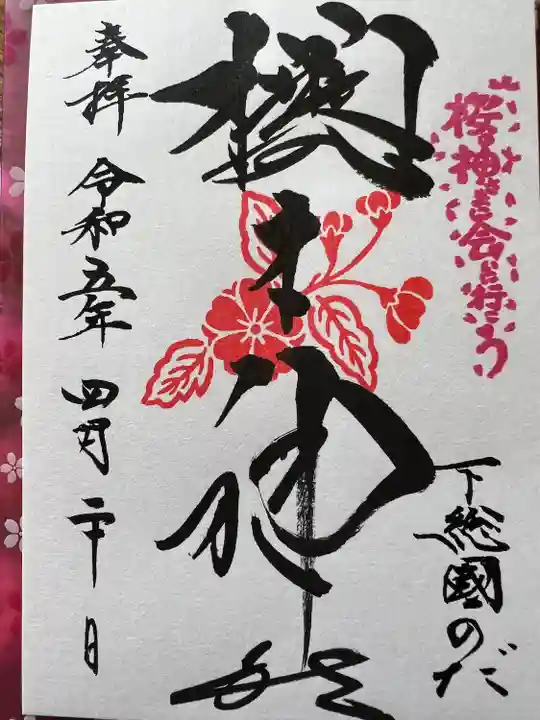 桜の神さまに会いに行こう
下総國のだ
櫻木神社
奉拝 令和五年 四月二十日